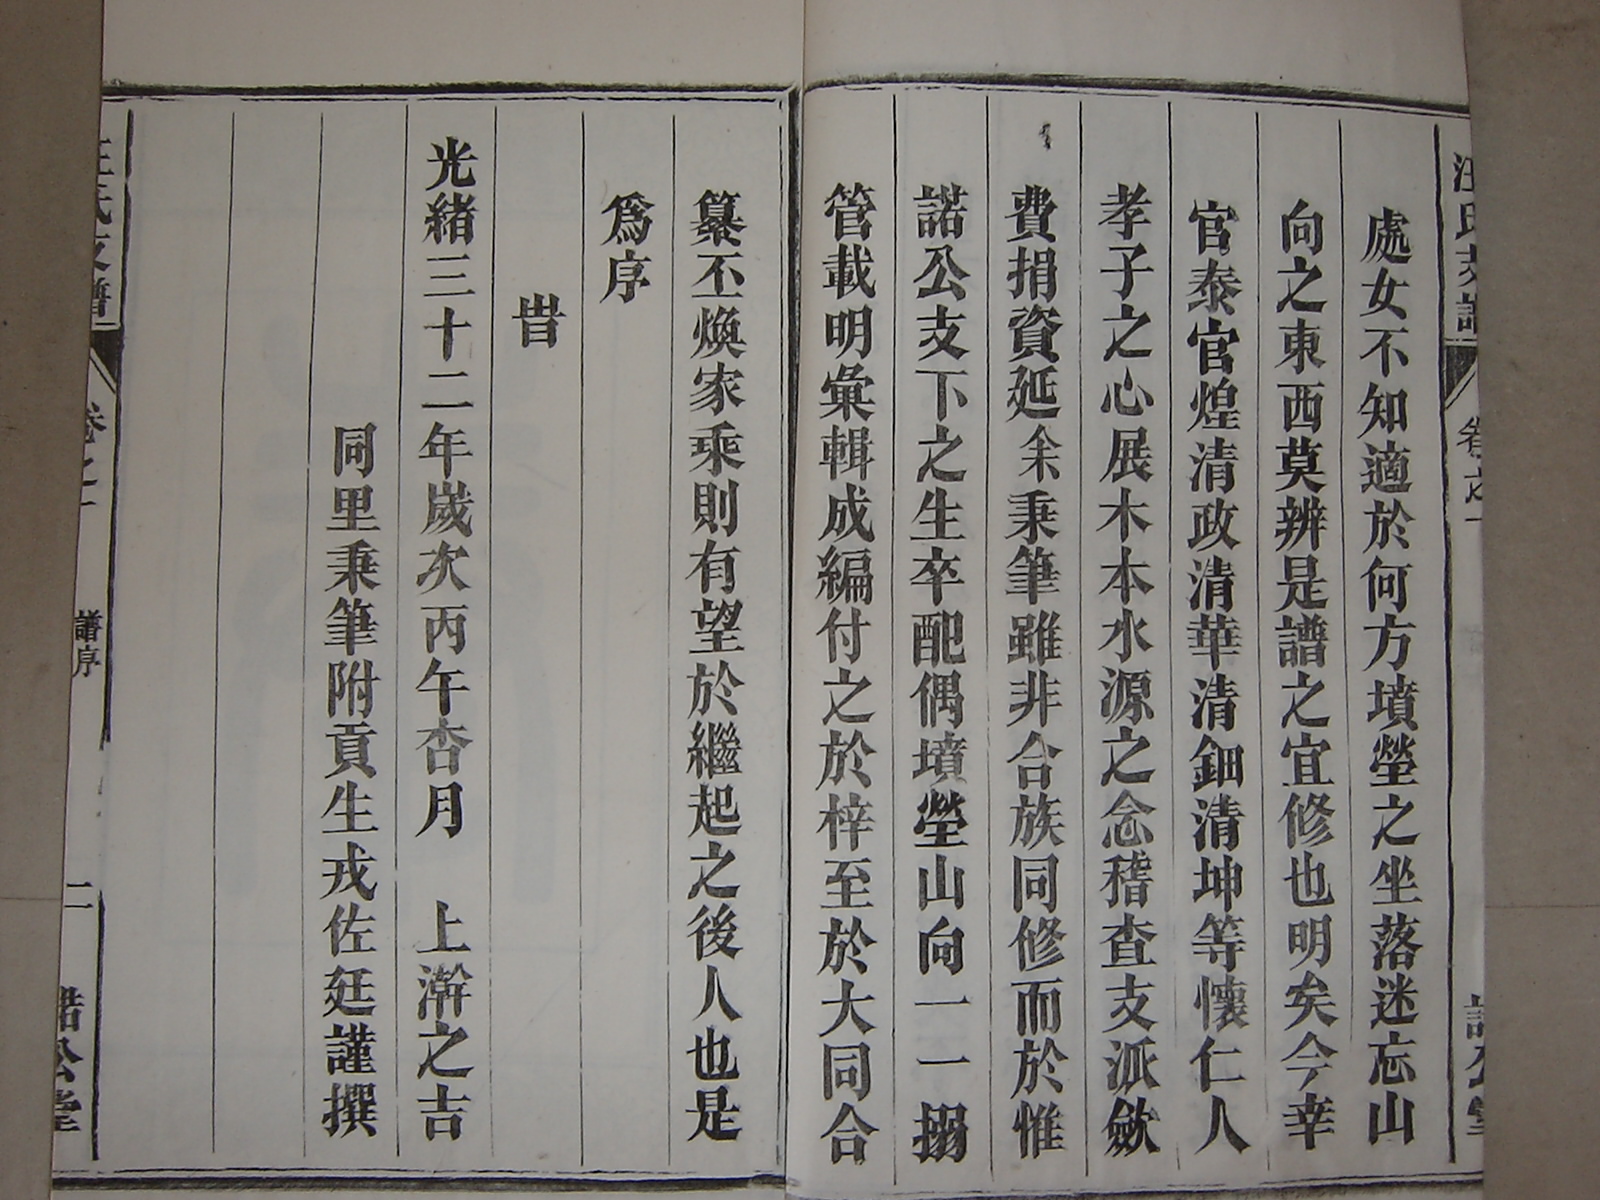 汪氏支譜
卷之一
諾公堂
處女不知適於何方墳塋之坐落迷忘山
向之東西莫辨是譜之宜修也明矣今幸
官泰官煌清政清華清鈿清坤等懷仁人
孝子之心展木本水源之念稽查支派斂
費捐資延余秉筆雖非合族同修而於惟
諾公支下之生卒配偶墳塋山向一一搦
管載明彙輯成編付之於梓至於大同合
纂丕煥家乘則有望於繼起之後人也是
爲序
旹
光緒三十二年歲次丙午杏月 上澣之吉
同里秉筆附貢生戎佐廷謹撰
汪氏支譜
卷之一
譜序
二
諾公堂